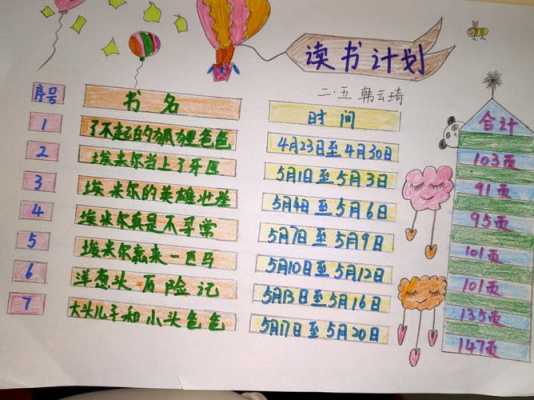 读书计划
二·五 韩云琦
序号 书名 时间 合计
1 了不起的狐狸爸爸 4月23日至4月30日 103页
2 埃米尔当上了牙医 5月1日至5月3日 91页
3 埃米尔的英雄 5月4日至5月6日 95页
4 埃米尔真是不寻常 5月7日至5月9日 101页
5 埃米尔赢来一匹马 5月10日至5月12日 101页
6 洋葱头历险记 5月13日至5月16日 135页
7 大头儿子和小头爸爸 5月17日至5月20日 147页